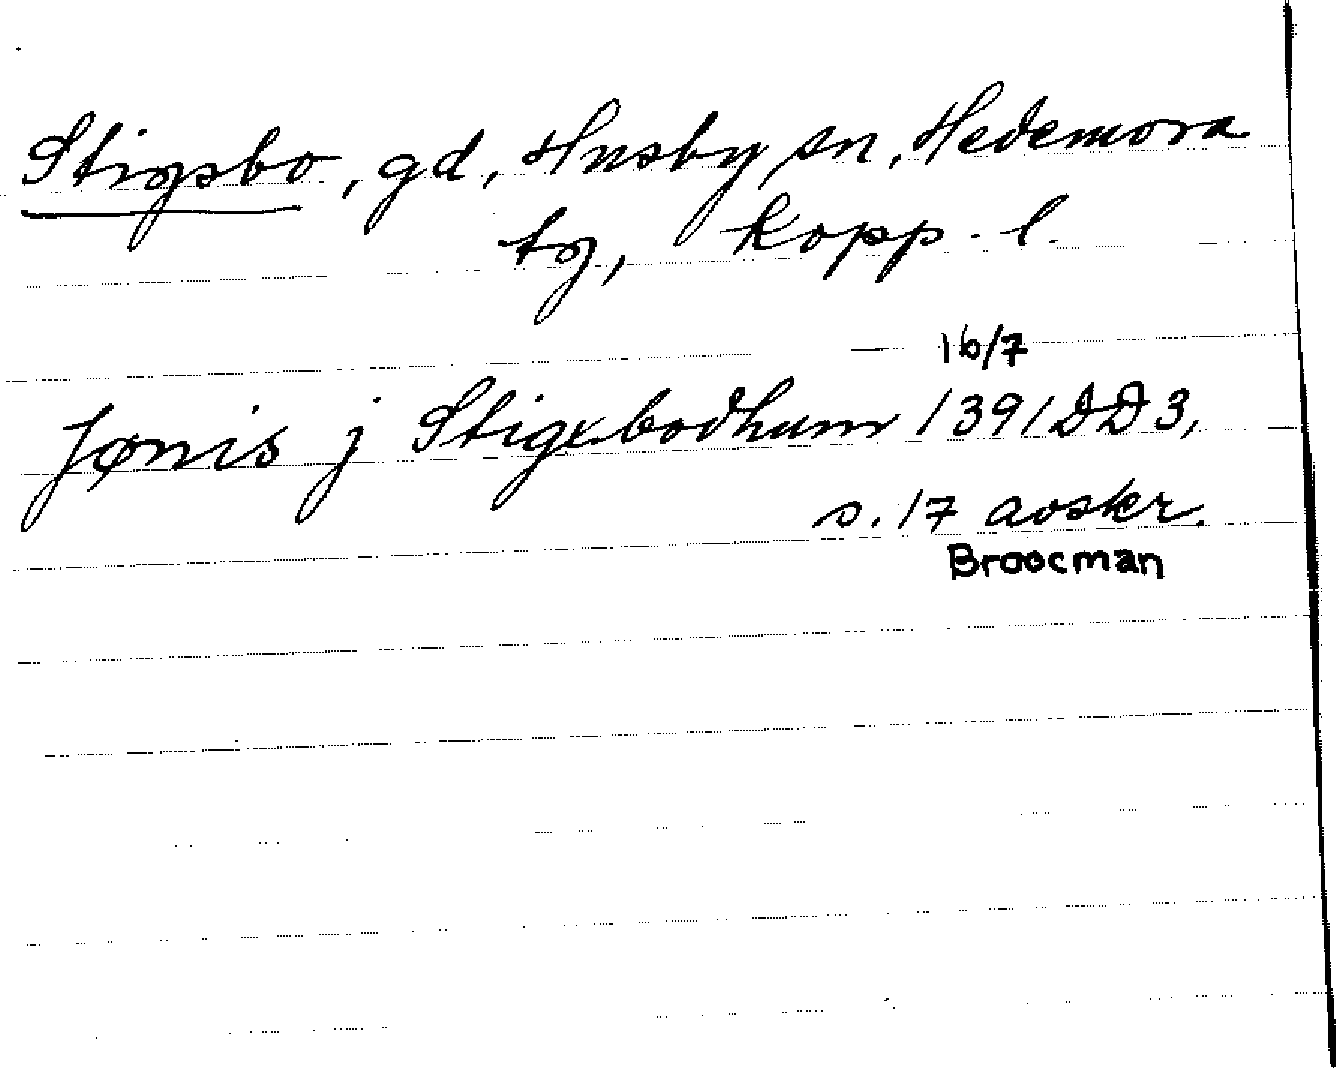 Stigsbo, gd, Husby sn, Hedemora
tg, Kopp. l.
16/7
Jønis j Stigxbodhum 1391 DD 3,
s. 17 avskr.
Broocman